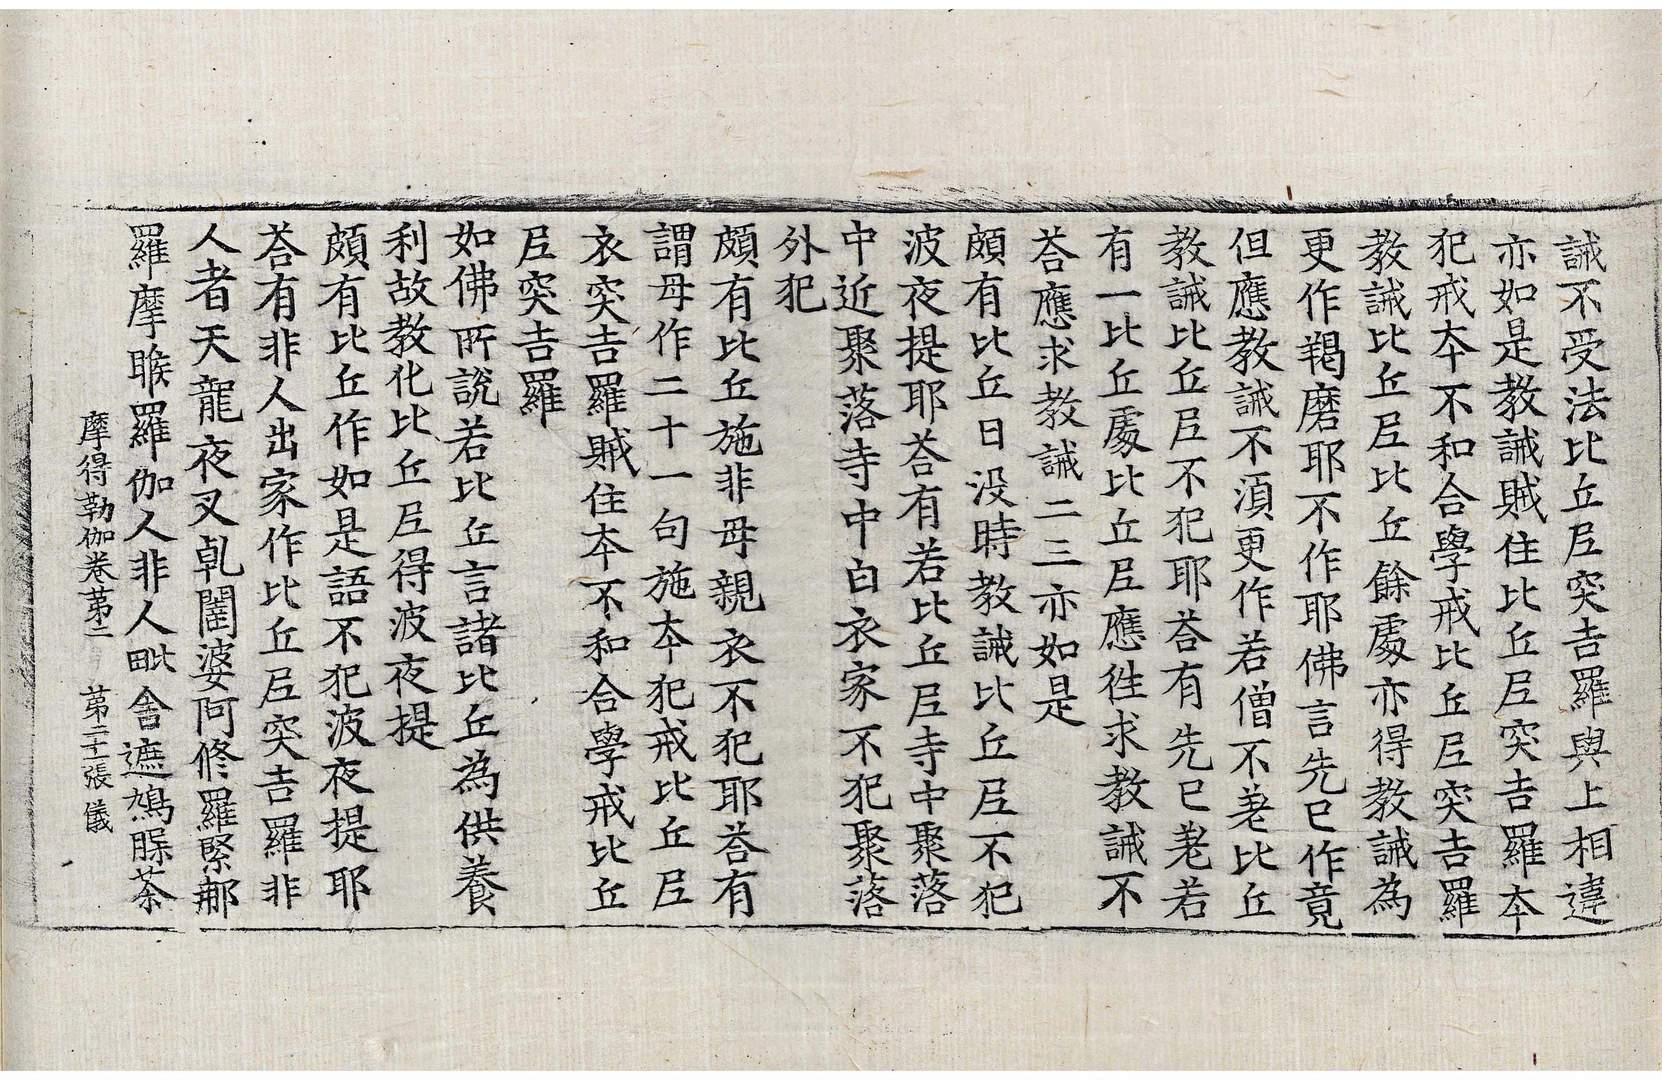 誡不受法比丘尼突吉羅與上相違
亦如是教誡賊住比丘尼突吉羅夲
犯戒夲不和合學戒比丘尼突吉羅
教誡比丘尼比丘餘䖏亦得教誡為
更作羯磨耶不作耶佛言先已作竟
但應教誡不湏更作若僧不差比丘
教誡比丘尼不犯耶荅有先已差若
有一比丘䖏比丘尼應徃求教誡不
荅應求教誡二三亦如是
頗有比丘日没時教誡比丘尼不犯
波夜提耶荅有若比丘尼寺中聚落
中近聚落寺中白衣家不犯聚落
外犯
頗有比丘施非母親衣不犯耶荅有
謂母作二十一句施夲犯戒比丘尼
衣突吉羅賊住夲不和合學戒比丘
尼突吉羅
如佛所說若比丘言諸比丘為供養
利故教化比丘尼得波夜提
頗有比丘作如是語不犯波夜提耶
荅有非人出家作比丘尼突吉羅非
人者天龍夜叉乹闥婆阿修羅緊那
羅摩睺羅伽人非人毗舍遮鳩槃荼
摩得勒伽卷苐二 苐二十一張 儀